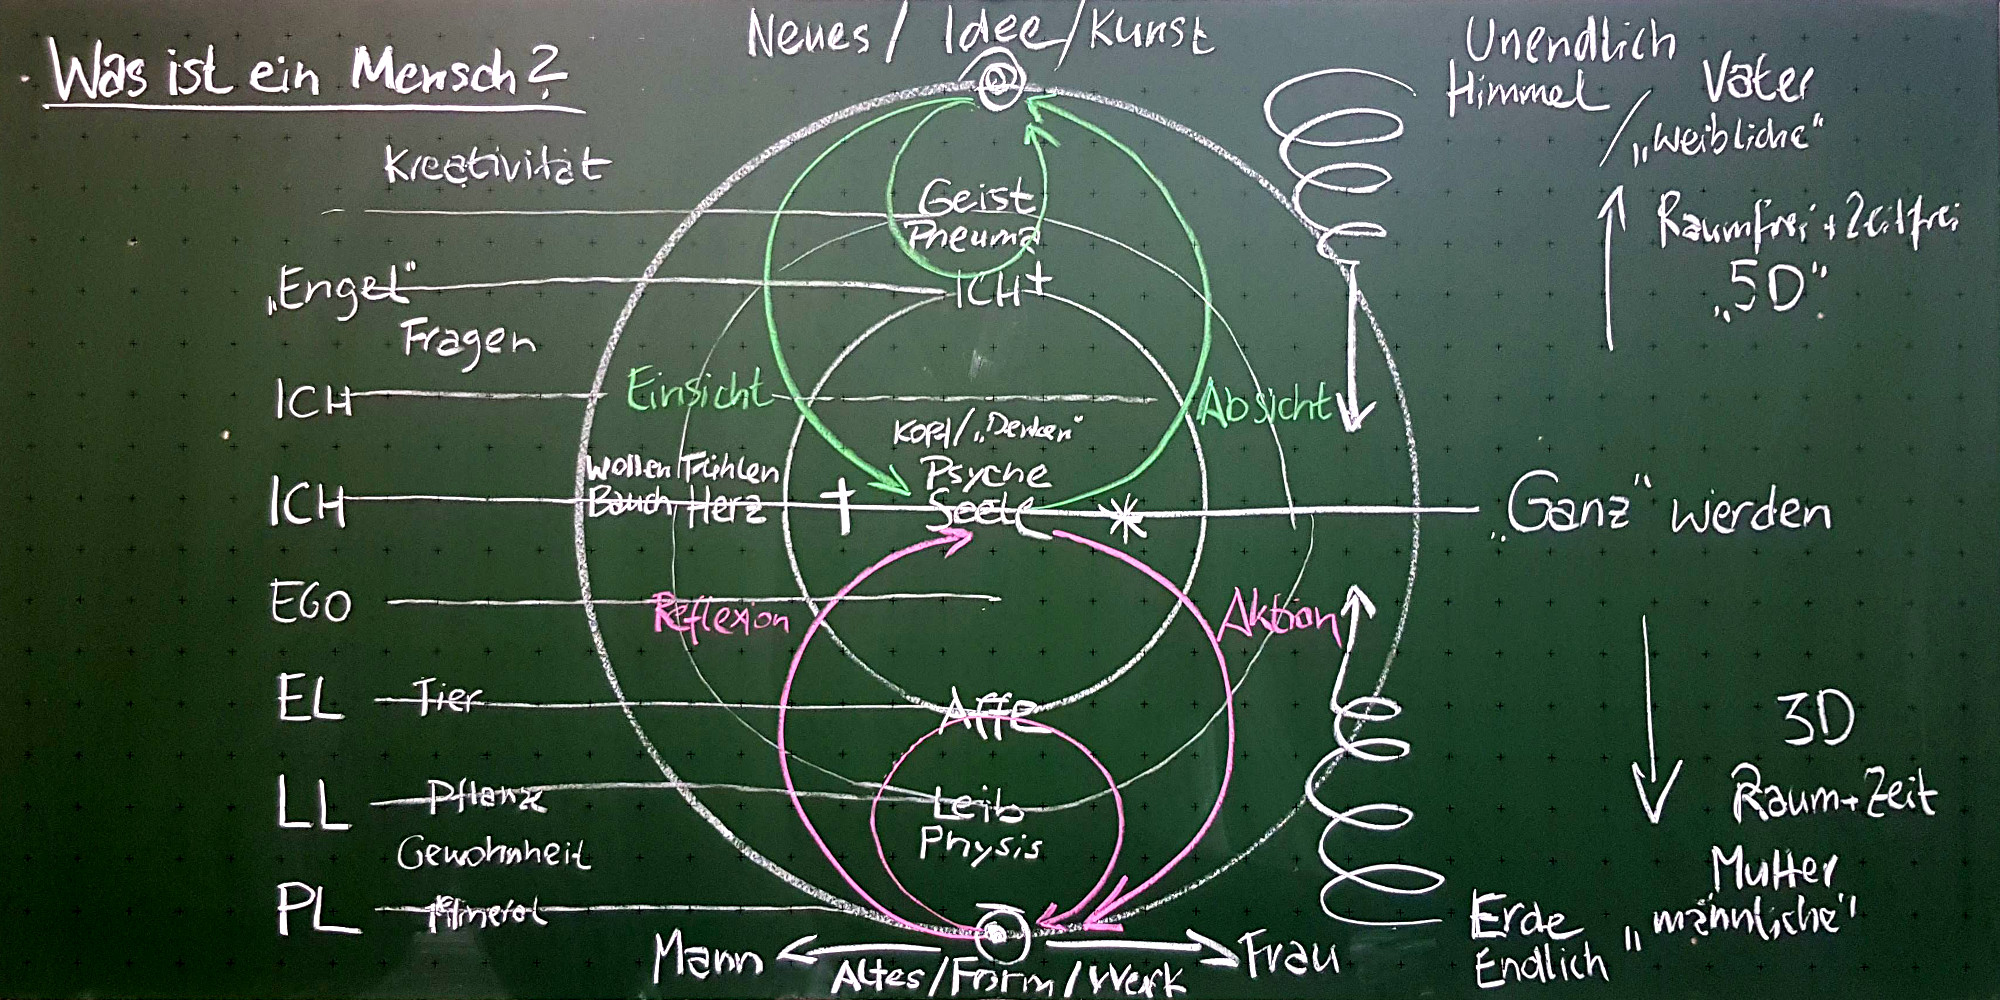 Was ist ein Mensch?
Neues / Idee / Kunst
Unendlich
Himmel / Vater
„Weibliche"
Kreativität
Geist
Pneuma
Raumfrei + Zeitfrei
„5D"
„Engel"
ICH+
Fragen
ICH
Einsicht
Absicht
Kopf / „Denken"
Wollen Fühlen
Psyche
ICH
Bauch Herz
Seele
„Ganz" werden
EGO
Reflexion
Aktion
EL
Tier
Affe
3D
LL
Pflanze
Leib
Raum + Zeit
Gewohnheit
Physis
Mutter
„männliche"
PL
Mineral
Erde
Endlich
Mann
Frau
Altes / Form / Werk